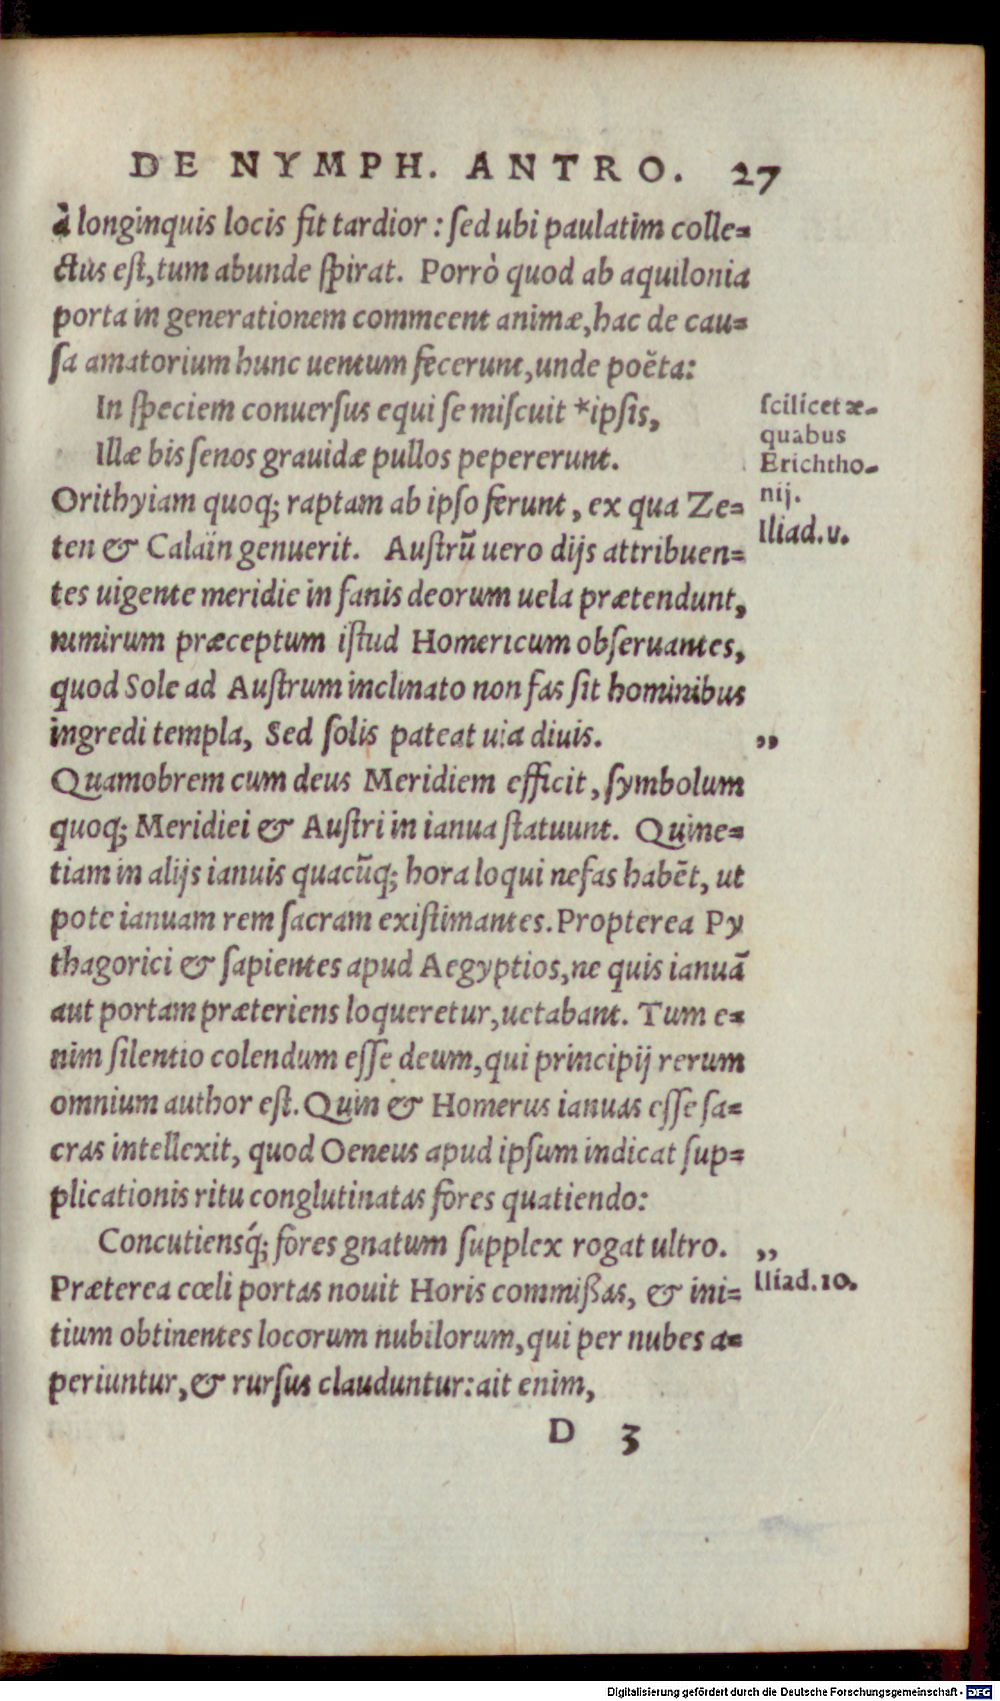 DE NYMPH. ANTRO. 27
à longinquis locis fit tardior: ſed ubi paulatim colle=
ctus eſt, tum abunde ſpirat. Porrò quod ab aquilonia
porta in generationem commeent animæ, hac de cau=
ſa amatorium hunc uentum fecerunt, unde poëta:
In ſpeciem conuerſus equi ſe miſcuit *ipſis,
Illæ bis ſenos grauidæ pullos pepererunt.
Orithyiam quoq; raptam ab ipſo ferunt, ex qua Ze=
ten & Calaïn genuerit. Auſtrũ uero dijs attribuen=
tes uigente meridie in fanis deorum uela prætendunt,
nimirum præceptum iſtud Homericum obſeruantes,
quod Sole ad Auſtrum inclinato non fas ſit hominibus
ingredi templa, Sed ſolis pateat uia diuis.
Quamobrem cum deus Meridiem efficit, ſymbolum
quoq; Meridiei & Auſtri in ianua ſtatuunt. Quine=
tiam in alijs ianuis quacũq; hora loqui nefas habẽt, ut
pote ianuam rem ſacram exiſtimantes. Propterea Py
thagorici & ſapientes apud Aegyptios, ne quis ianuã
aut portam præteriens loqueretur, uetabant. Tum e=
nim ſilentio colendum eſſe deum, qui principij rerum
omnium author eſt. Quin & Homerus ianuas eſſe ſa=
cras intellexit, quod Oeneus apud ipſum indicat ſup=
plicationis ritu conglutinatas fores quatiendo:
Concutiensq́; fores gnatum ſupplex rogat ultro.
Præterea cœli portas nouit Horis commiſſas, & ini=
tium obtinentes locorum nubilorum, qui per nubes a=
periuntur, & rurſus clauduntur: ait enim,
D 3
ſcilicet æ=
quabus
Erichtho=
nij.
Iliad.υ.
„
„
Iliad.10.
Digitalisierung gefördert durch die Deutsche Forschungsgemeinschaft - DFG